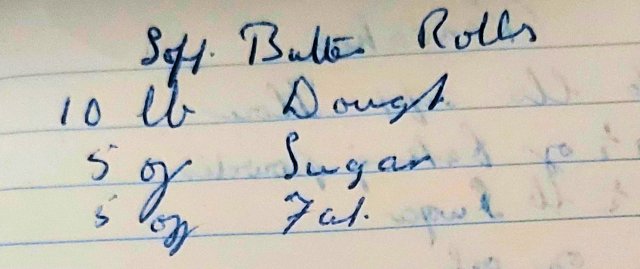 Soft Butter Rolls
10 lb Dough
5 oz Sugar
5 oz Fat.